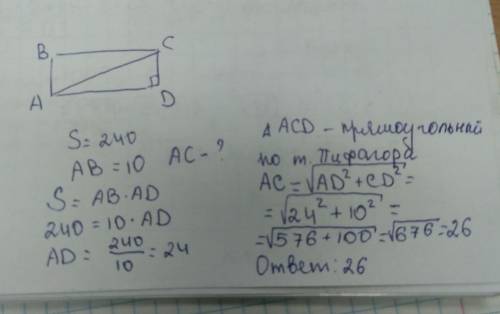 B C
A D
S = 240
AB = 10 AC - ?
S = AB · AD
240 = 10 · AD
AD = 240/10 = 24
Δ ACD - прямоугольный
по т. Пифагора
AC = √(AD² + CD²) =
= √(24² + 10²) =
= √(576 + 100) = √676 = 26
Ответ: 26